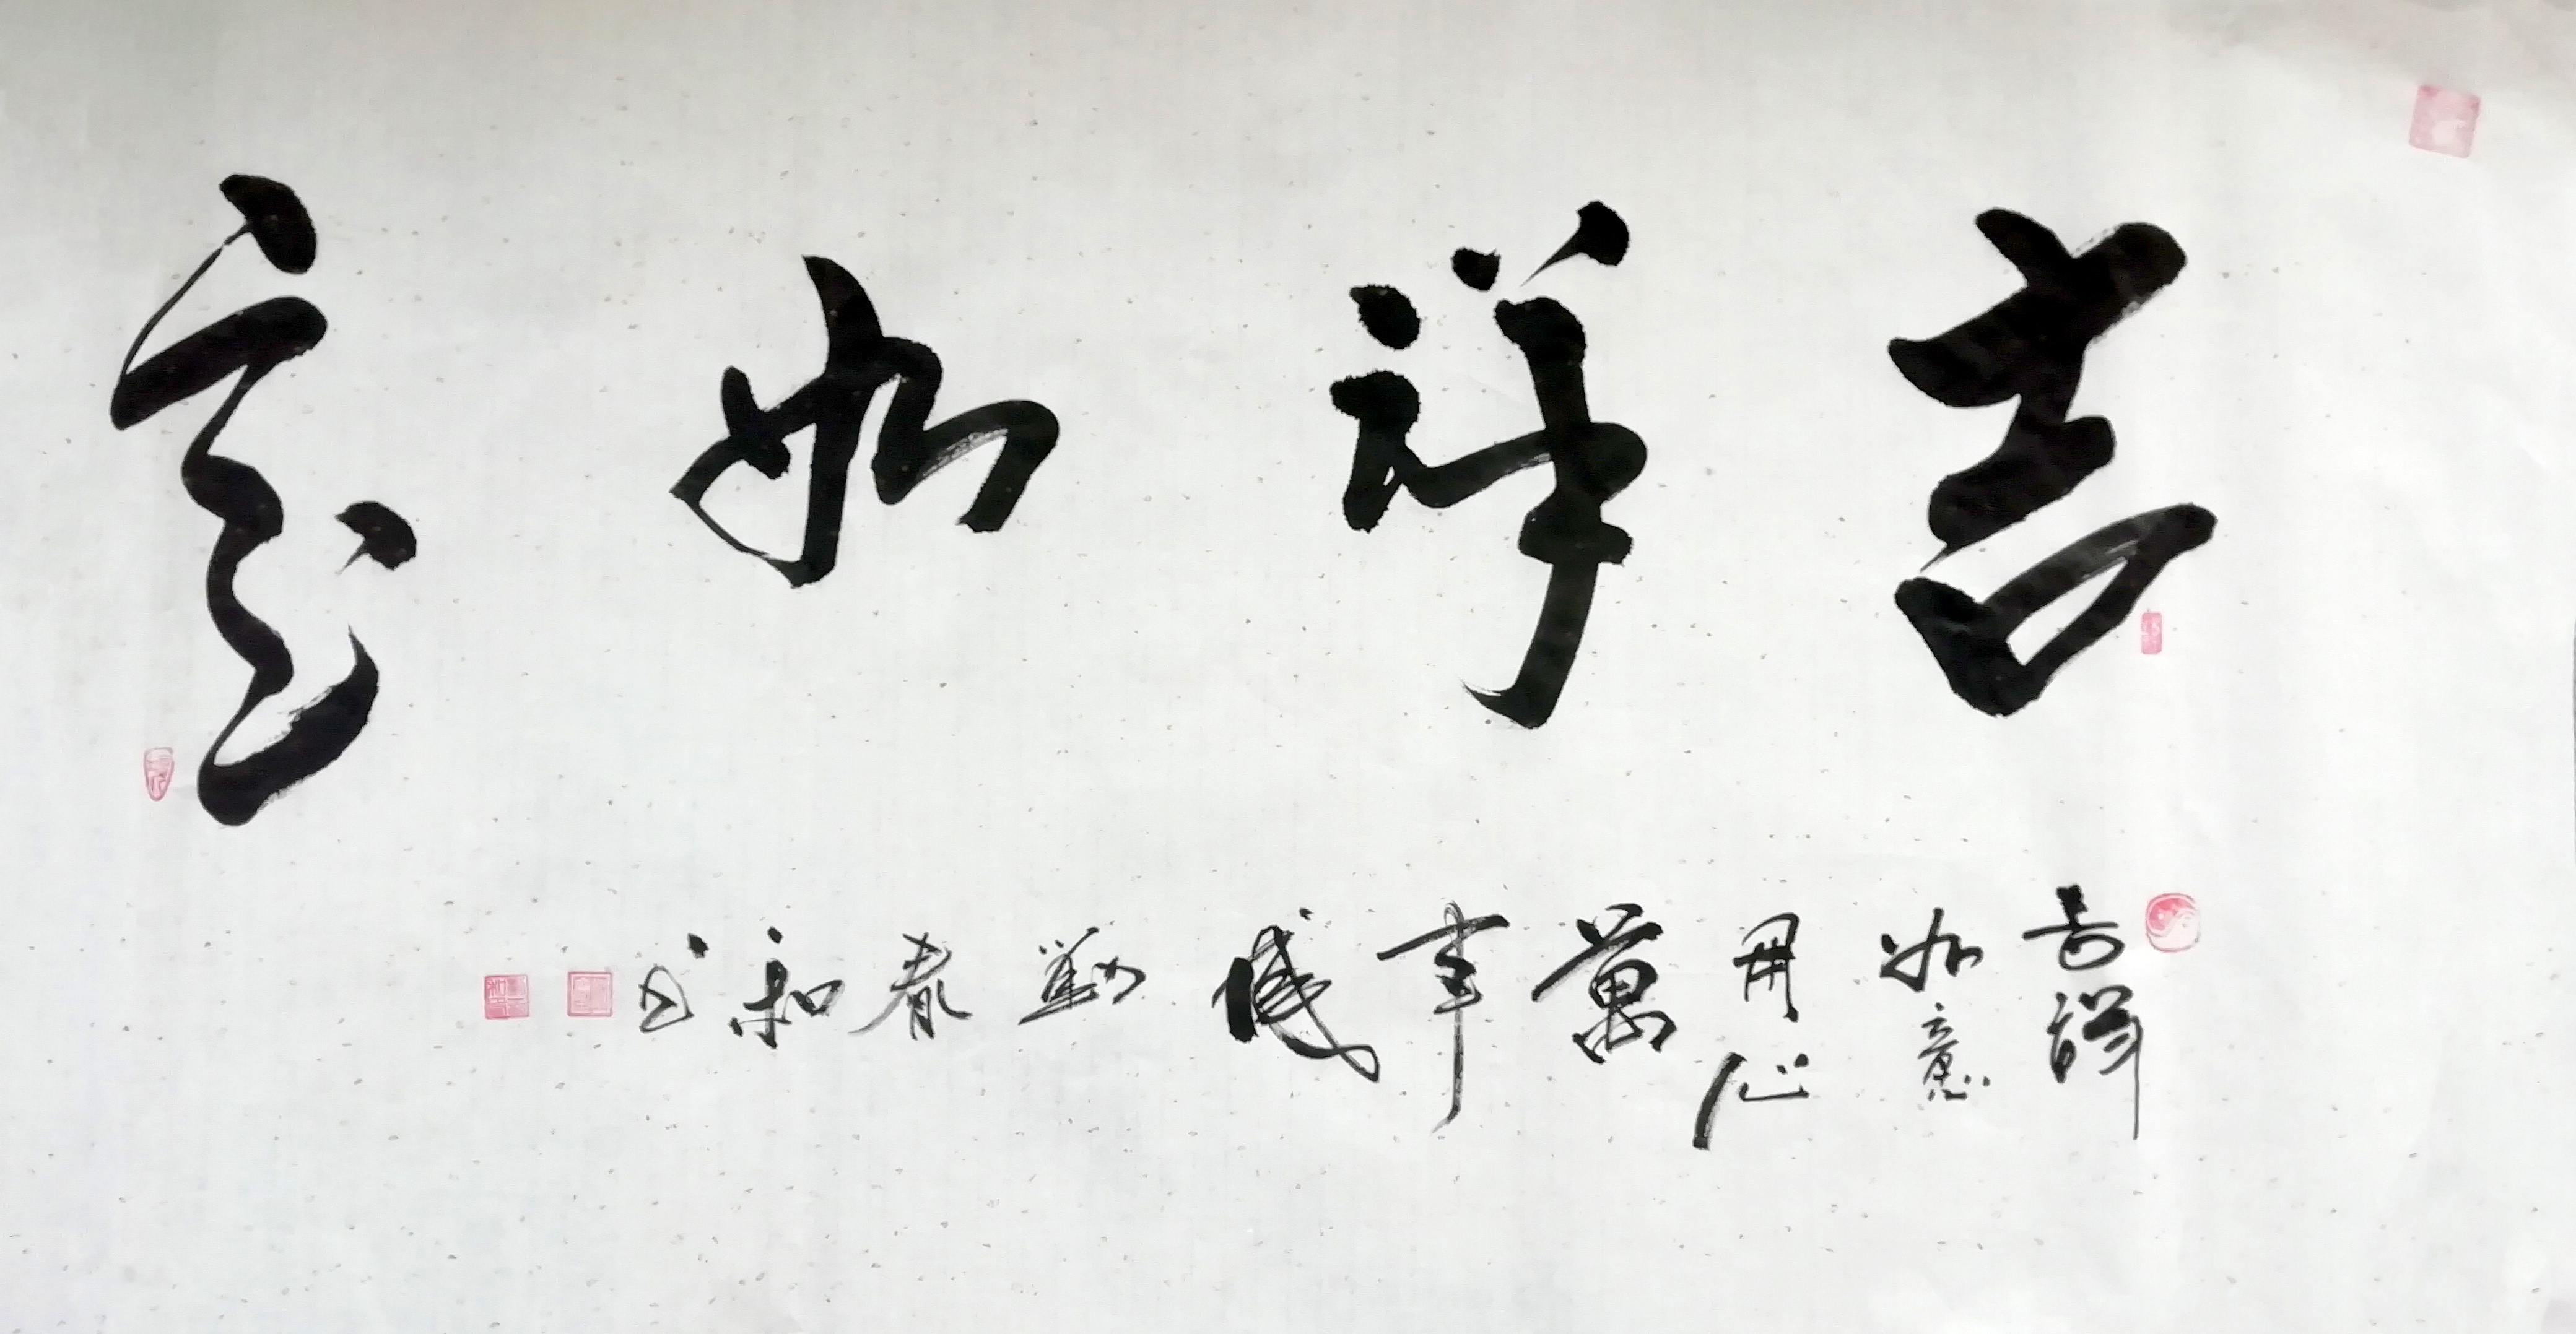 吉祥如意
吉祥如意用心萬事成劉春和书